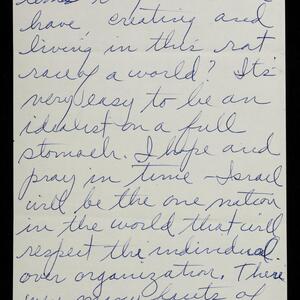 have, creating and
living in this rat
race of a world? It's
very easy to be an
idealist on a full
stomach. I hope and
pray in time - Israel
will be the one nation
in the world that will
respect the individual
over organization. There